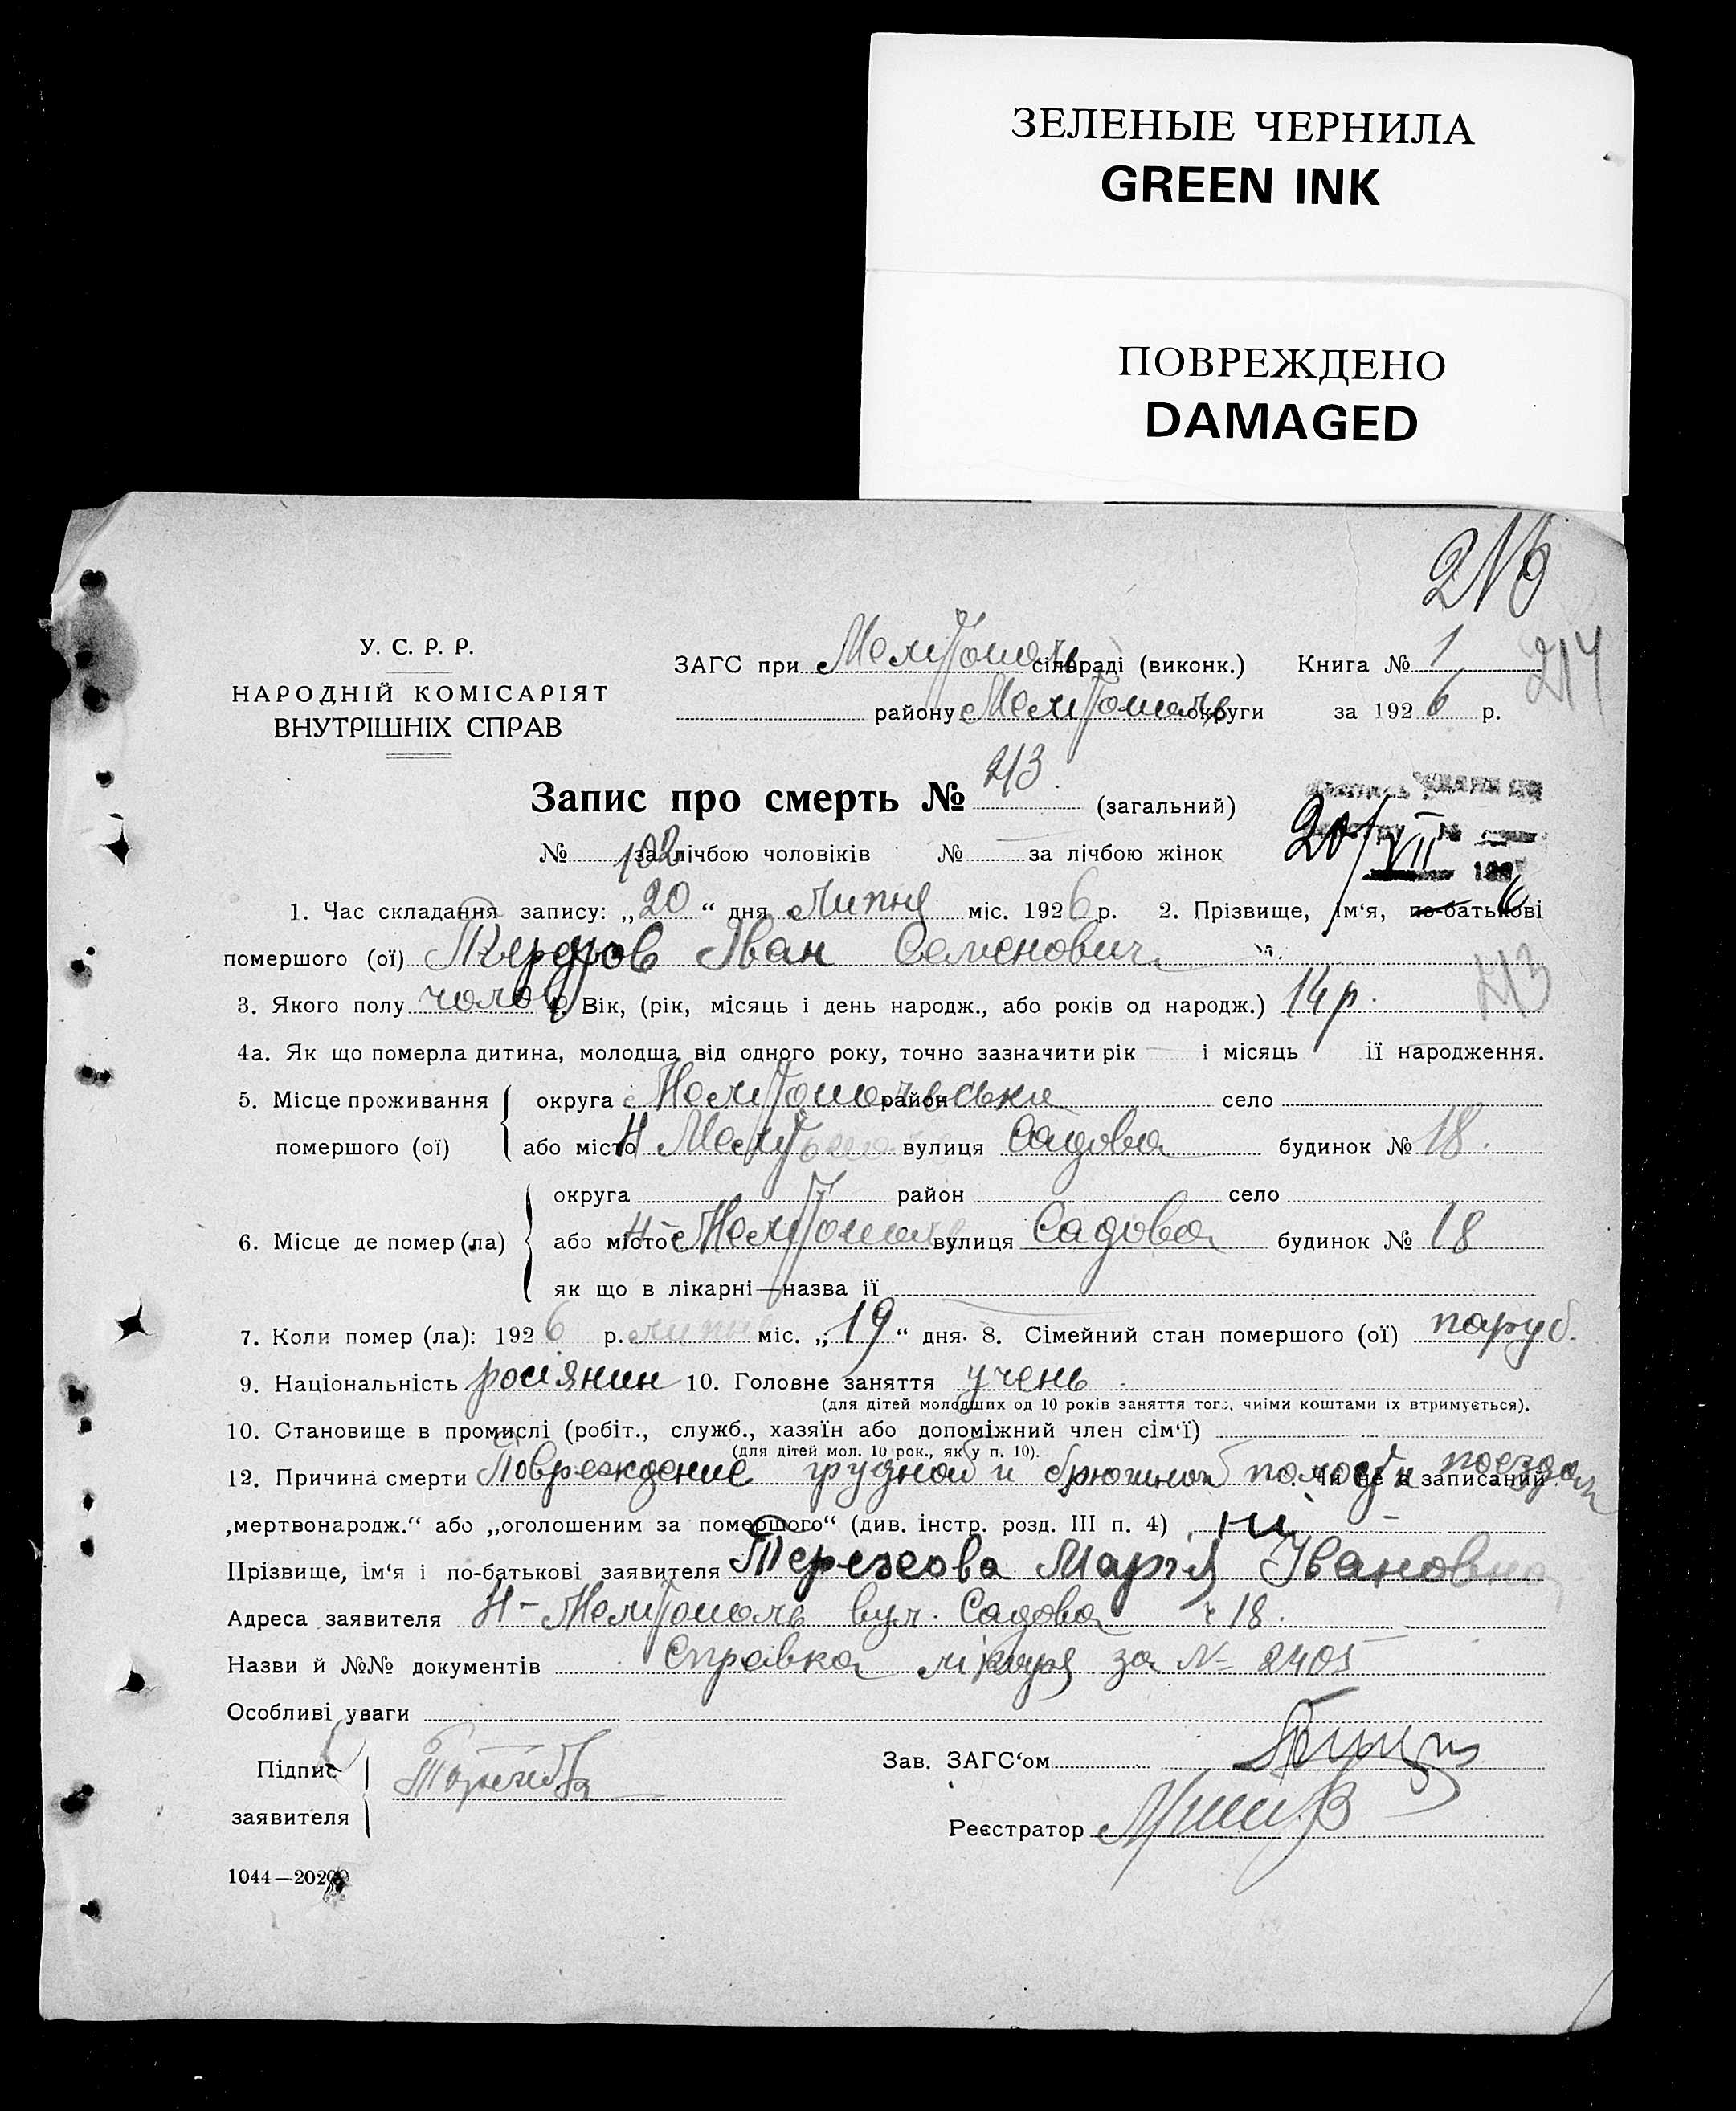 ЗЕЛЕНЫЕ ЧЕРНИЛА
GREEN INK
ПОВРЕЖДЕНО
DAMAGED
214
У. С. Р. Р.
НАРОДНІЙ КОМІСАРІЯТ
ВНУТРІШНІХ СПРАВ
ЗАГС при Мелітополь сільраді (виконк.) Книга № 1
району Мелітополь округи за 1926 р.
Запис про смерть № 213 (загальний)
№ 102 за лічбою чоловіків № — за лічбою жінок
20/VII
1. Час складання запису: „20“ дня Липня міс. 1926 р. 2. Прізвище, ім‘я, по-батькові
помершого (ої) Іван Семенович
213
3. Якого полу чолов 4. Вік, (рік, місяць і день народж., або років од народж.) 14 р.
4а. Як що померла дитина, молодща від одного року, точно зазначити рік — і місяць — її народження.
5. Місце проживання помершого (ої) округа Мелітопольська район село
або місто Н Мелітополь вулиця Садова будинок № 18.
6. Місце де помер (ла) округа район село
або місто Н-Мелітополь вулиця Садова будинок № 18
як що в лікарні—назва її
7. Коли помер (ла): 1926 р. липня міс. „19“ дня. 8. Сімейний стан помершого (ої) паруб.
9. Національність росіянин 10. Головне заняття учень
(для дітей молодших од 10 років заняття того, чиїми коштами їх втримується).
10. Становище в промислі (робіт., служб., хазяїн або допоміжний член сім‘ї)
(для дітей мол. 10 рок., як у п. 10).
12. Причина смерти Повреждение грудной и брюшной полости поездом Чи не є записаний
„мертвонародж.“ або „оголошеним за помершого“ (див. інстр. розд. III п. 4) ні
Прізвище, ім‘я і по-батькові заявителя Марія Івановна
Адреса заявителя Н-Мелітополь вул. Садова ч 18.
Назви й №№ документів Справка лікаря за № 2405
Особливі уваги
Підпис
заявителя
Зав. ЗАГС‘ом
Реєстратор